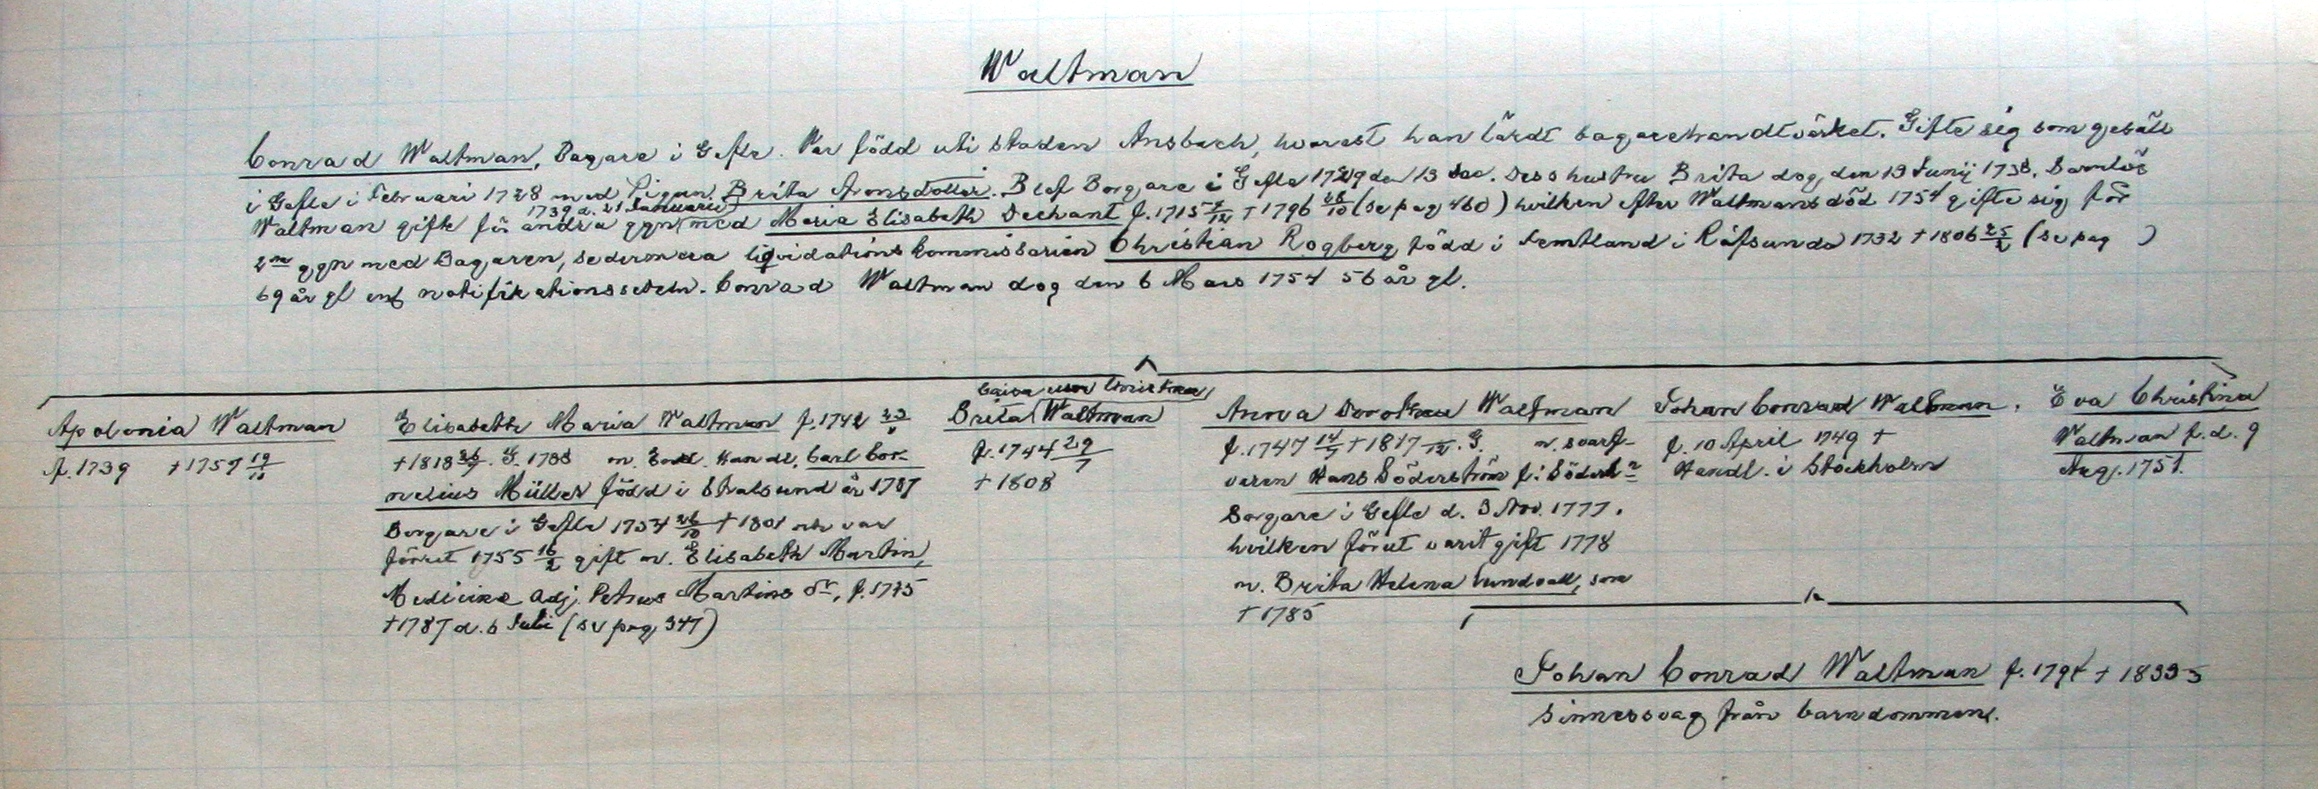 Waltman
Conrad Waltman, Bagare i Gefle. Var född uti staden Ansbach, hvarest han lärdt bagarehandtvärket. Gifte sig som gesäll
i Gefle i Februari 1728 med Pigan Brita Aronsdotter. Blef Borgare i Gefle 1729 den 13 Dec. Dess hustru Brita dog den 13 Junij 1738. Barnlös
1739 d. 21 Januarii
Waltman gifte för andra ggn med Maria Elisabeth Dechant f. 1715 12 † 1796 28/10 (se pag 460) hvilken efter Waltmans död 1754 gifte sig för
2ra ggn med Bagaren, sedermera liqvidations Commissarien Christian Rogberg född i Jemtland i Räfsunda 1732 † 1806 25/2 (se pag )
69 år gl enl notifikationssedeln. Conrad Waltman dog den 6 Mars 1754 56 år gl.
Apolonia Waltman
f. 1739 † 1757 19
Elisabeth Maria Waltman f. 1742 23
† 1818 G. 1788 m. Handl. Carl Cor-
nelius Müller född i Stralsund år
Borgare i Gefle 1754 26/10 † 1801 och var
förut 1755 16/2 gift m. Elisabeth Martin,
Medicine Adj. Petrus Martins dr, f. 1725
† 1787 d. 6 Juli (se pag 347)
Brita Waltman
f. 1744 29/7
† 1808
Anna Dorothea Waltman
f. 1747 14 † 1817 12. G. m. svarf-
varen Hans Söderström f. i Söderh n
Borgare i Gefle d. 3 Nov. 1777.
hvilken förut varit gift 1778
m. Brita Helena Lundvall, som
† 1785
Johan Conrad Waltman.
f. 10 April 1749 †
Handl. i Stockholm
Eva Christina
Waltman f. d. 9
Aug. 1751.
Johan Conrad Waltman f. 1794 † 1835
sinnessvag från barndommen.